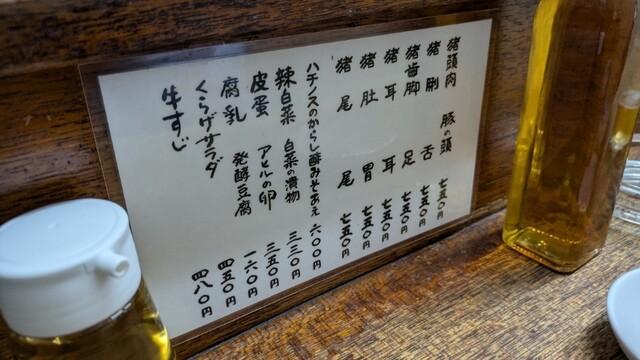 猪頭肉 豚の頭 七五〇円
猪脷 舌 七五〇円
猪歯脚 足 七五〇円
猪耳 耳 七五〇円
猪肚 胃 七五〇円
猪尾 尾 七五〇円
ハチノスのからし酢みそあえ 六〇〇円
辣白菜 白菜の漬物 三三〇円
皮蛋 アヒルの卵 三五〇円
腐乳 発酵豆腐 一六〇円
くらげサラダ 四五〇円
牛すじ 四八〇円